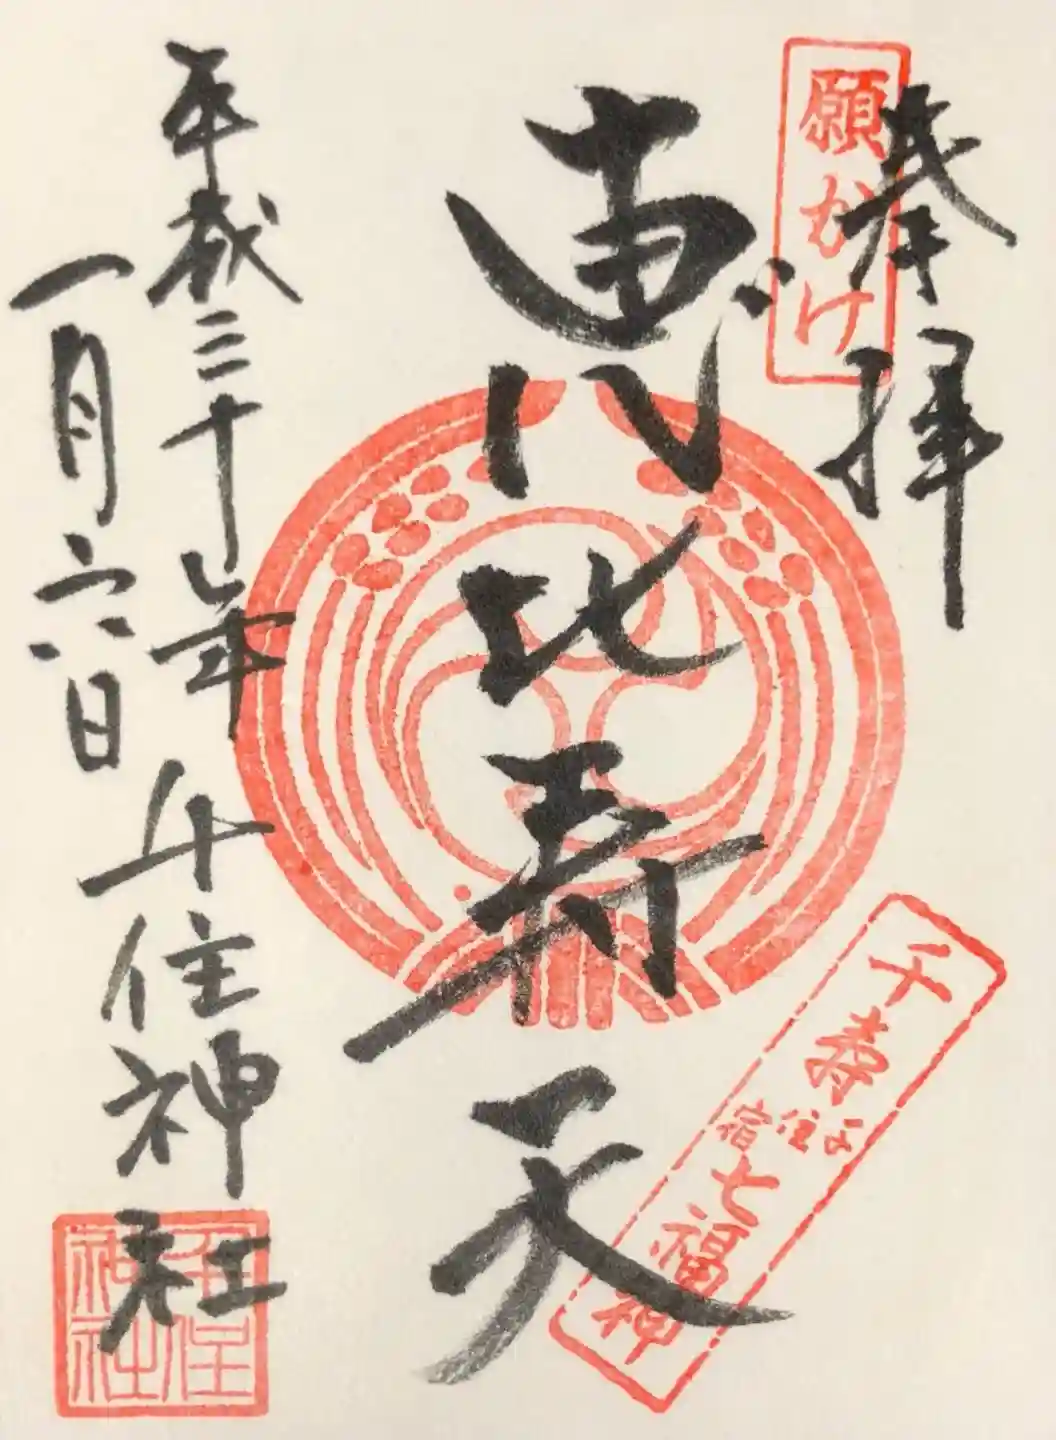 奉拝
願かけ
恵比寿天
千寿七福神
平成三十年
一月六日
千住神社
千住神社